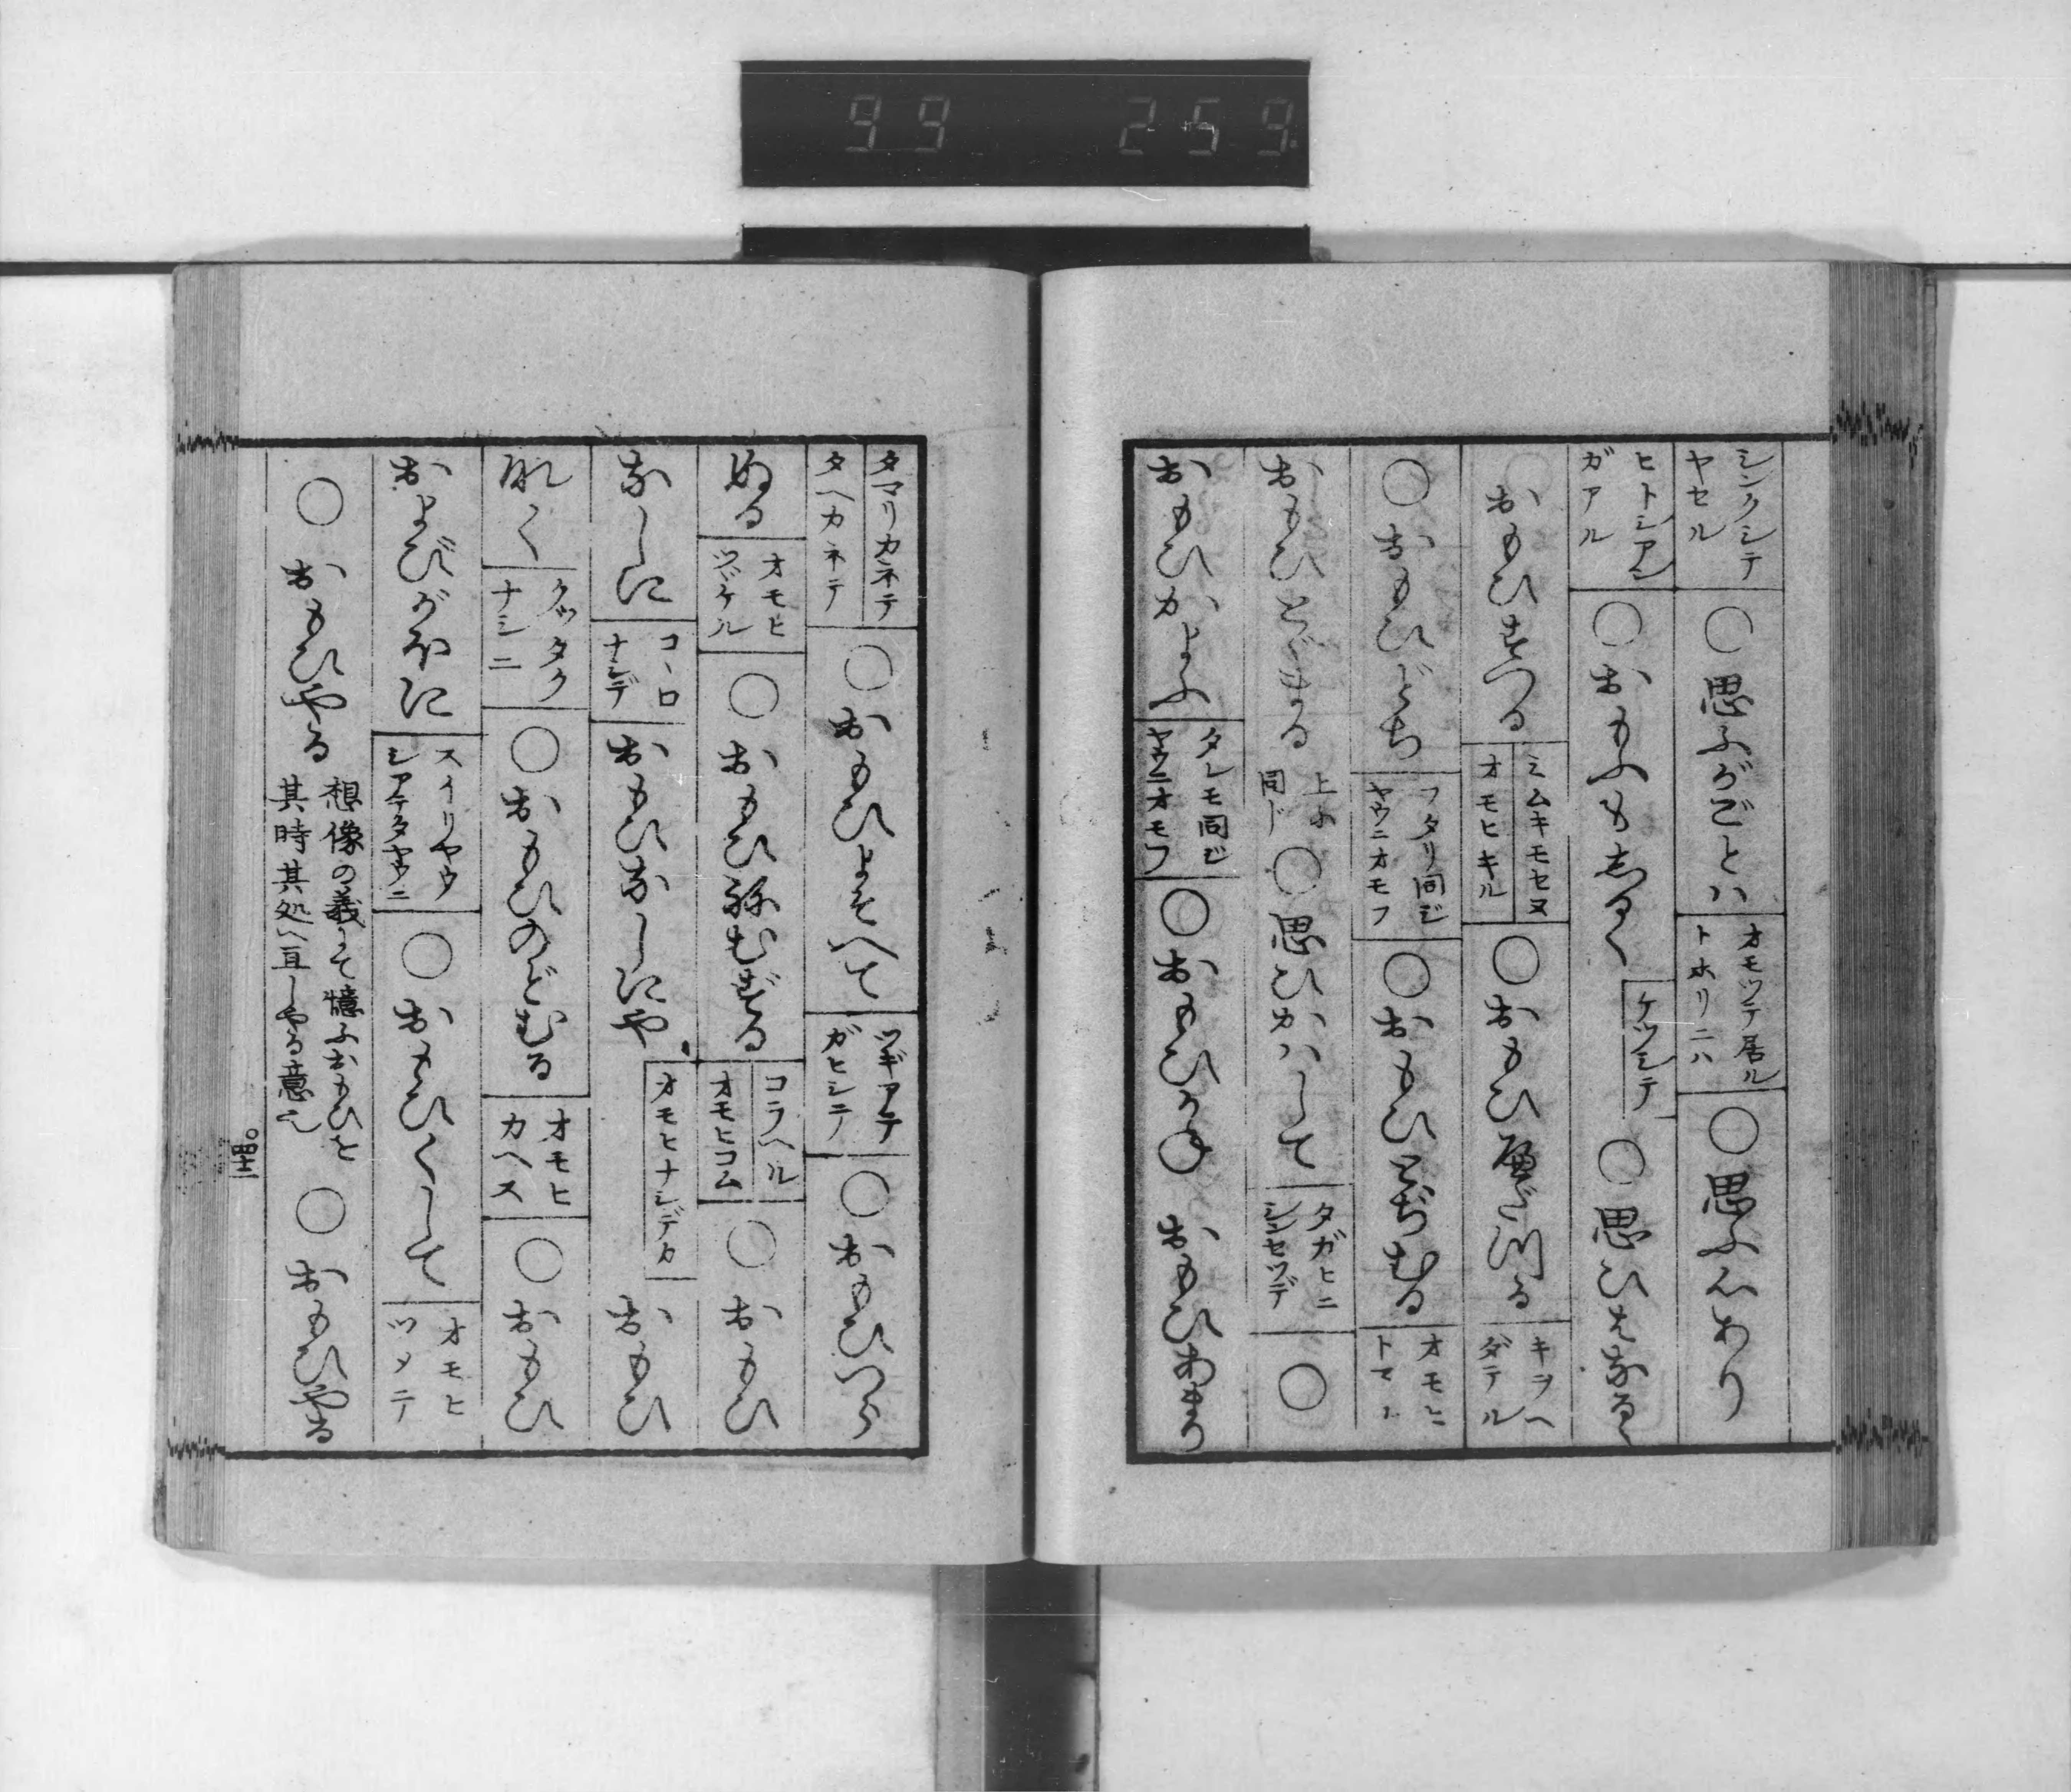 99 259
シンクシテ
ヤセル
○思ふがごとハ
オモツテ居ル
トホリニハ
○思ふ心あり
ヒトシアン
ガアル
○おもふもしるく
ケツシテ
○思ひはなるゝ
おもひすつる
ミムキモセヌ
オモヒキル
○おもひ屋だつる
キラヘ
ダテル
○おもひどち
フタリ同ジ
ヤウニオモフ
○おもひとぢむる
オモヒ
トマル
おもひとゞまる
上ニ
同ジ
○思ひかハして
タガヒニ
シンセツデ
○
おもひかよふ
タレモ同ジ
ヤウニオモフ
○おもひかね
おもひあまり
タマリカネテ
タヘカネテ
○おもひよそへて
ツギアテ
ガヒシテ
○おもひつら
ぬる
オモヒ
ツヾケル
○おもひねむずる
コラヘル
オモヒコム
○おもひ
なしに
コヽロ
ナシデ
おもひなしにや
オモヒナシデカ
おもひ
なく
クツタク
ナシニ
○おもひのどむる
オモヒ
カヘス
○おもひ
およびがほに
スイリヤウ
シアテタヤウニ
○おもひくして
オモヒ
ツメテ
○おもひやる
想像の義にて憶ふおもひを
其時其処へ亘しやる意也
○おもひやる
四十二